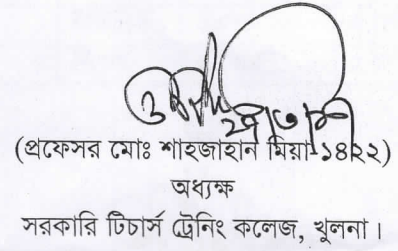 (প্রফেসর মোঃ শাহজাহান মিয়া-১৪২২)
অধ্যক্ষ
সরকারি টিচার্স ট্রেনিং কলেজ, খুলনা।